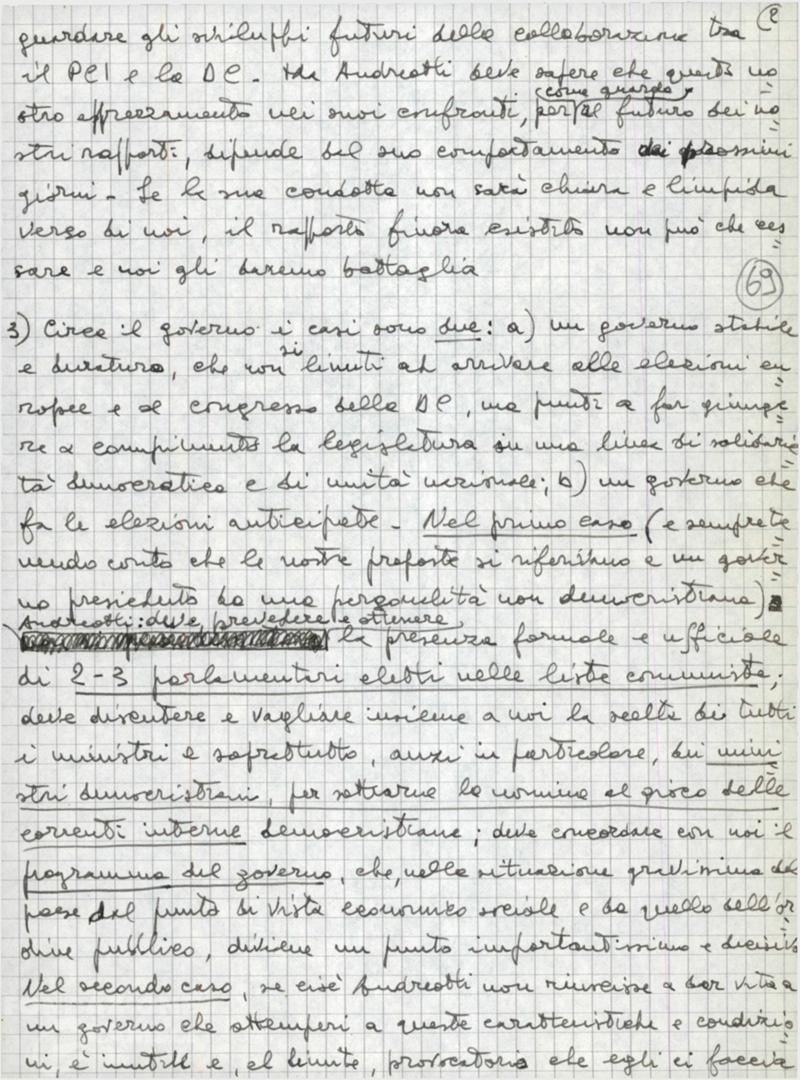 2
guardare gli sviluppi futuri della collaborazione tra
il PCI e la DC. Ma Andreotti deve sapere che questo no
come guarda
stro apprezzamento nei suoi confronti, per al futuro dei no
stri rapporti, dipende dal suo comportamento dei prossimi
giorni. Se la sua condotta non sarà chiara e limpida
verso di noi, il rapporto finora esistito non può che ces
sare e noi gli daremo battaglia
69
3) Circa il governo i casi sono due: a) un governo stabile
e duraturo, che non si limiti ad arrivare alle elezioni eu
ropee e al congresso della DC, ma punti a far giunge
re a compimento la legislatura su una linea di solidarie
tà democratica e di unità nazionale; b) un governo che
fa le elezioni anticipate. Nel primo caso (e sempre te
nendo conto che le nostre proposte si riferivano a un gover
no presieduto da una personalità non democristiana)
Andreotti: deve prevedere e ottenere
la presenza formale e ufficiale
di 2-3 parlamentari eletti nelle liste comuniste;
deve discutere e vagliare insieme a noi la scelta di tutti
i ministri e soprattutto, anzi in particolare, dei mini
stri democristiani, per sottrarne la nomina al gioco delle
correnti interne democristiane; deve concordare con noi il
programma del governo, che, nella situazione gravissima del
paese dal punto di vista economico sociale e da quello dell'or
dine pubblico, diviene un punto importantissimo e decisivo
Nel secondo caso, se cioè Andreotti non riuscisse a dar vita a
un governo che ottemperi a queste caratteristiche e condizio
ni, è inutile e, al limite, provocatorio che egli ci faccia